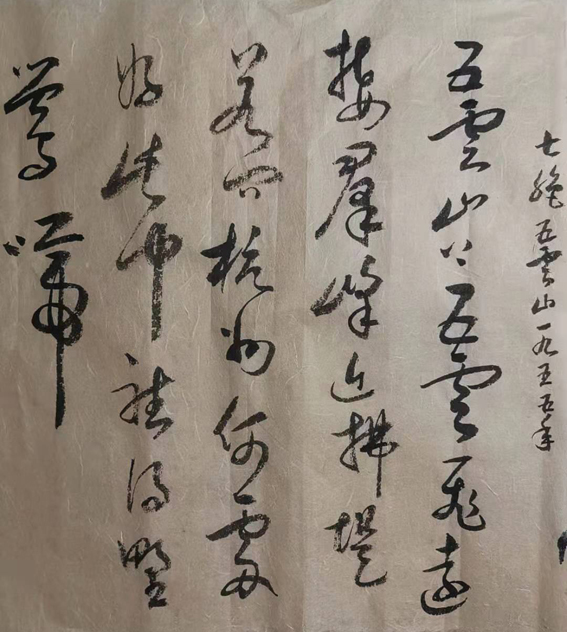 七絕五雲山一九五五年
五雲山上五雲飛遠
接羣峰近拂堤
若問杭州何處
好此中聽得野
鶯啼